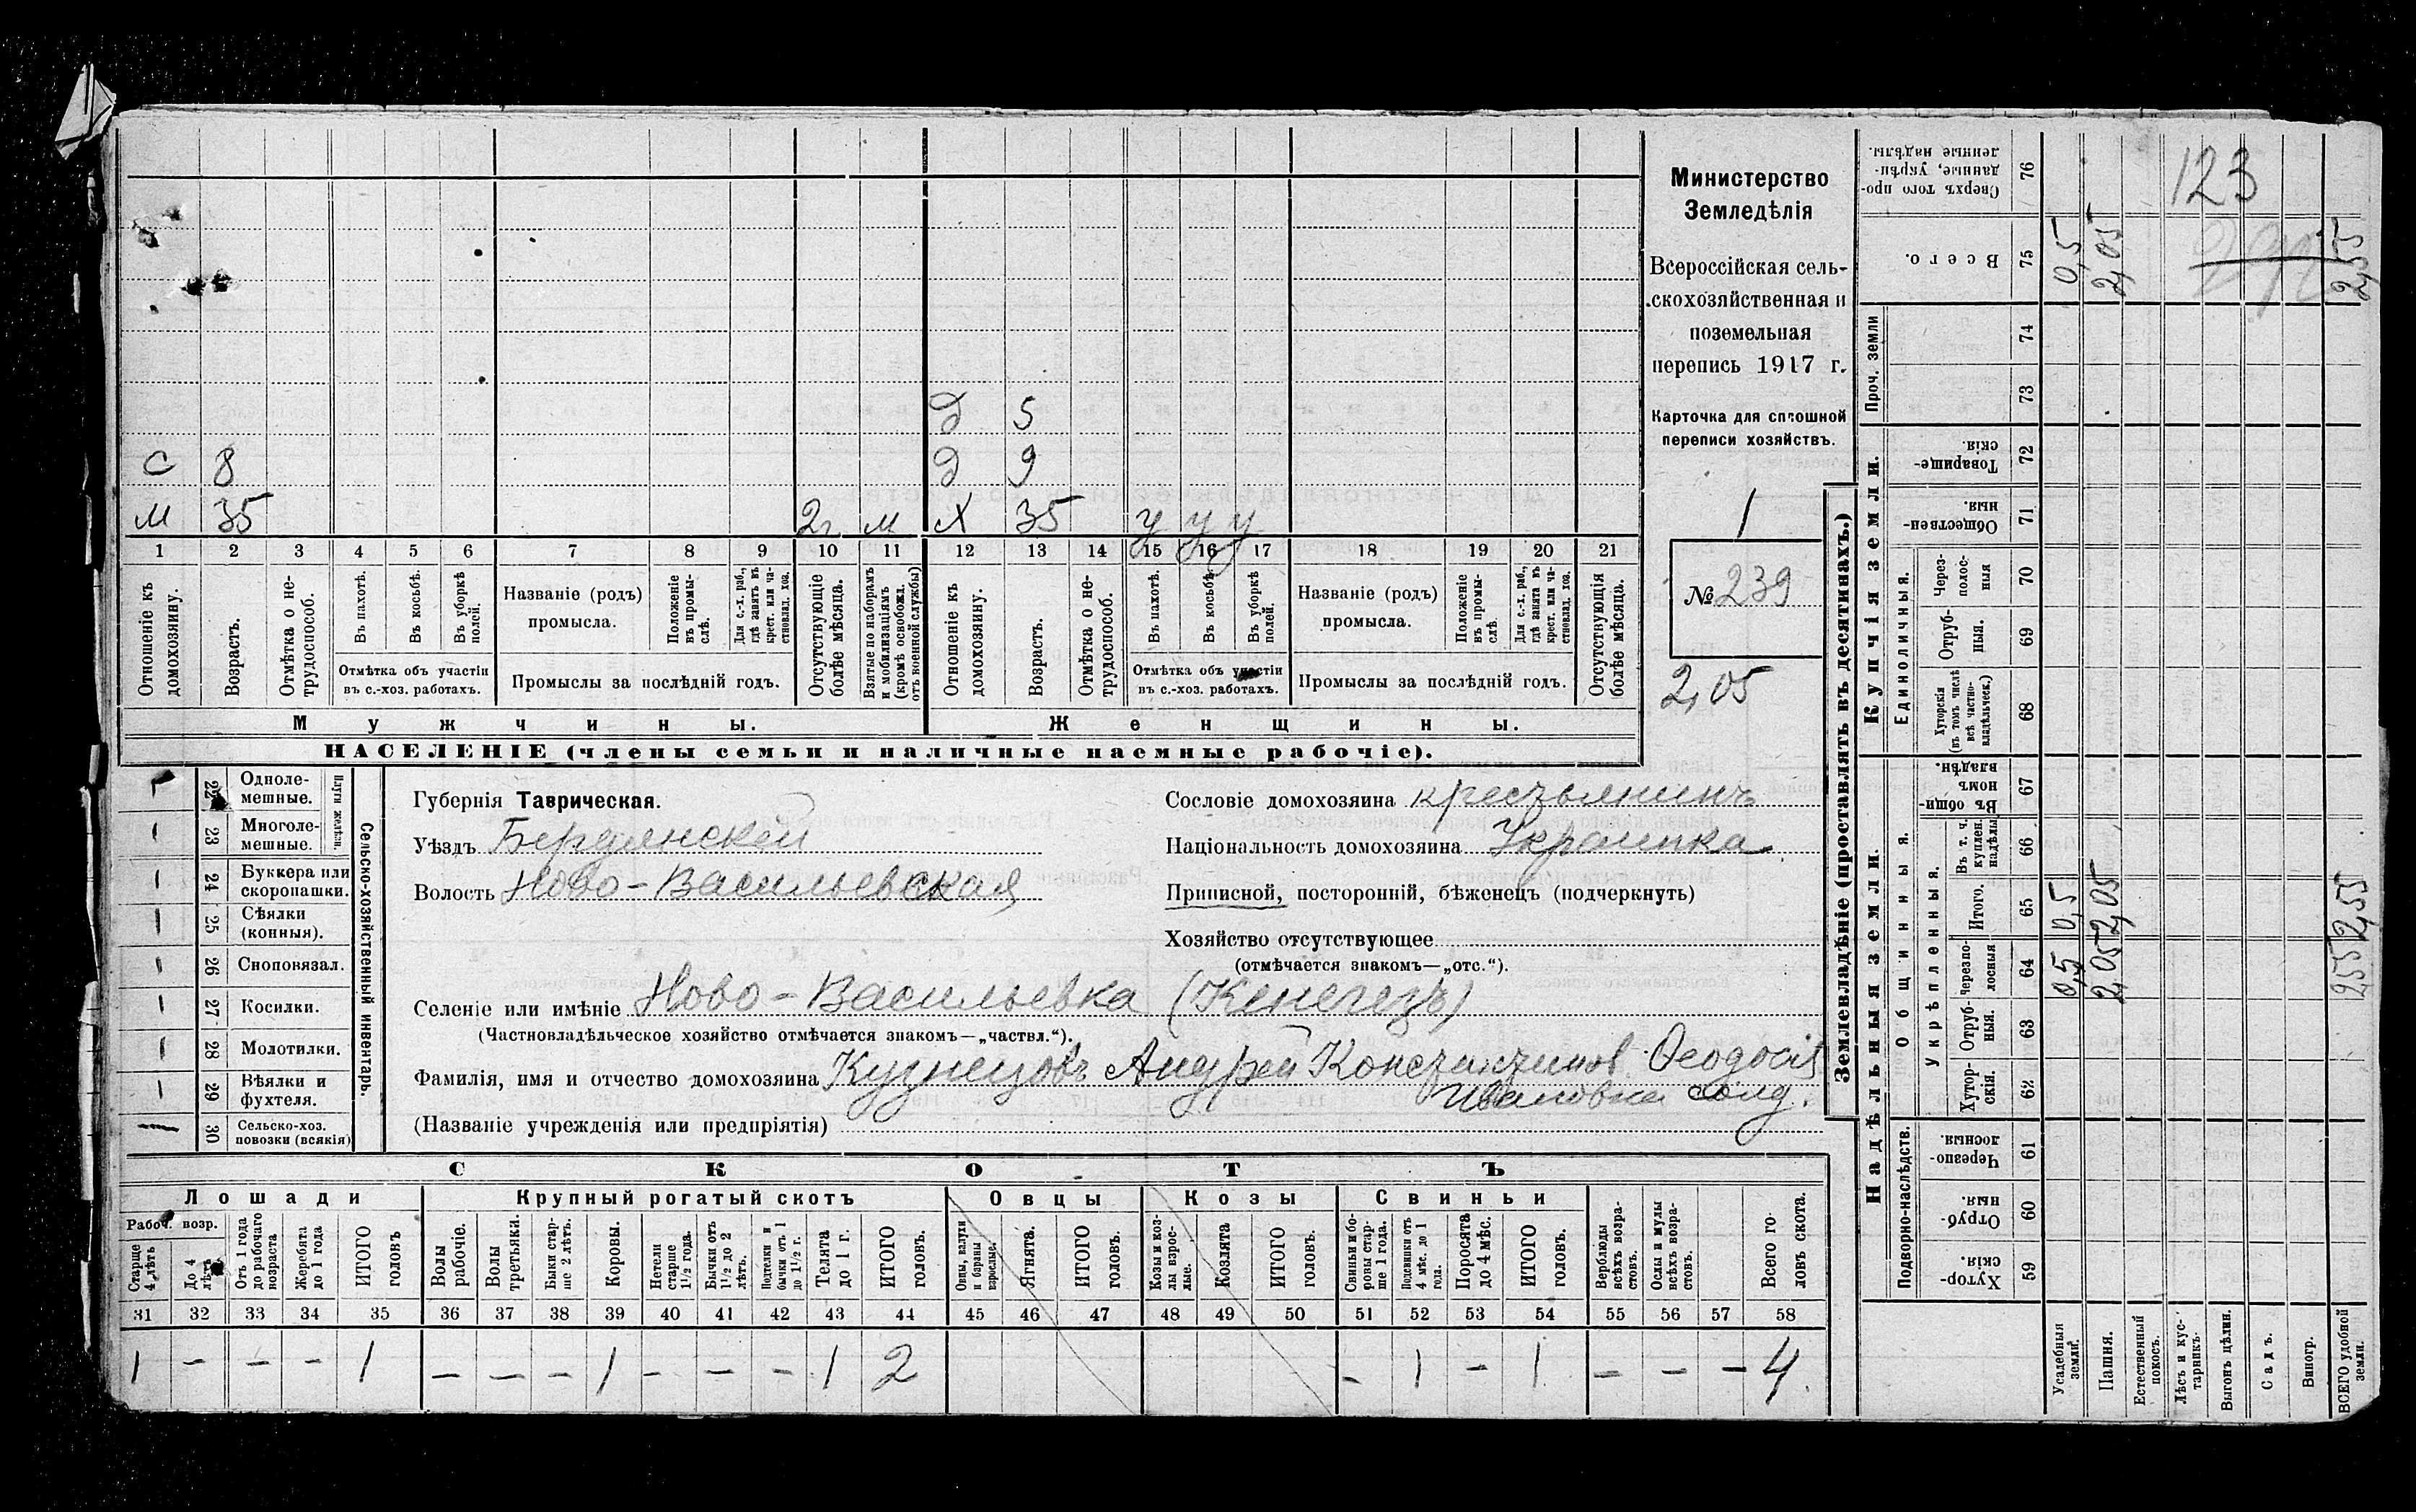 Д 5
С 8 Д 9
М 35 2г М Х 35 у у у
1 2 3 4 5 6 7 8 9 10 11 12 13 14 15 16 17 18 19 20 21
Отношеніе къ домохозяину.
Возрастъ.
Отмѣтка о не-трудоспособ.
Въ пахотѣ.
Въ косьбѣ.
Въ уборкѣ полей.
Отмѣтка объ участіи
въ с.-хоз. работахъ.
Названіе (родъ)
промысла.
Положеніе въ промы-слѣ.
Для с.-х. раб., гдѣ занятъ въ крест. или ча-стновлад. хоз.
Промыслы за послѣдній годъ.
Отсутствующіе болѣе мѣсяца.
Взятые по наборамъ и мобилизаціямъ (кромѣ освобожд. отъ военной службы)
Отношеніе къ домохозяину.
Возрастъ.
Отмѣтка о не-трудоспособ.
Въ пахотѣ.
Въ косьбѣ.
Въ уборкѣ полей.
Отмѣтка объ участіи
въ с.-хоз. работахъ.
Названіе (родъ)
промысла.
Положеніе въ промы-слѣ.
Для с.-х. раб., гдѣ занята въ крест. или ча-стновлад. хоз.
Промыслы за послѣдній годъ.
Отсутствующія болѣе мѣсяца.
Мужчины. Женщины.
НАСЕЛЕНІЕ (члены семьи и наличные наемные рабочіе).
Министерство
Земледѣлія
Всероссійская сель-
скохозяйственная и
поземельная
перепись 1917 г.
Карточка для сплошной
переписи хозяйствъ.
1
№ 239
2,05
22 Одноле-мешные.
23 Многоле-мешные.
Плуги желѣзн.
24 Буккера или скоропашки.
25 Сѣялки (конныя).
26 Сноповязал.
27 Косилки.
28 Молотилки.
29 Вѣялки и фухтеля.
30 Сельско-хоз. повозки (всякія)
Сельско-хозяйственный инвентарь.
Губернія Таврическая.
Уѣздъ Бердянскій
Волость Ново-Васильевская
Сословіе домохозяина крестьянинъ
Національность домохозяина Украинка
Приписной, посторонній, бѣженецъ (подчеркнуть)
Хозяйство отсутствующее
(отмѣчается знакомъ—„отс.“).
Селеніе или имѣніе Ново-Васильевка (Кенегезъ)
(Частновладѣльческое хозяйство отмѣчается знакомъ—„частвл.“).
Фамилія, имя и отчество домохозяина Кузнецовъ Андрей Константинов. Ѳеодосія
Ивановна солд.
(Названіе учрежденія или предпріятія)
СКОТЪ
Лошади Крупный рогатый скотъ Овцы Козы Свиньи
Рабоч. возр.
Старше 4 лѣтъ
До 4 лѣтъ
Отъ 1 года до рабочаго возраста
Жеребята до 1 года
ИТОГО головъ
Волы рабочіе.
Волы третьяки.
Быки стар-ше 2 лѣтъ.
Коровы.
Нетели старше 1½ года.
Бычки отъ 1½ до 2 лѣтъ.
Подтелки и бычки отъ 1 до 1½ г.
Телята до 1 г.
ИТОГО головъ.
Овцы, валухи и бараны взрослые.
Ягнята.
ИТОГО головъ.
Козы и коз-лы взрос-лые.
Козлята
ИТОГО головъ.
Свиньи и бо-ровы стар-ше 1 года.
Подсвинки отъ 4 мѣс. до 1 года.
Поросята до 4 мѣс.
ИТОГО головъ.
Верблюды всѣхъ возра-стовъ.
Ослы и мулы всѣхъ возра-стовъ.
Всего го-ловъ скота.
31 32 33 34 35 36 37 38 39 40 41 42 43 44 45 46 47 48 49 50 51 52 53 54 55 56 57 58
1 - - - 1 - - - 1 - - - 1 2 - 1 - 1 - - - 4
Землевладѣніе (проставлять въ десятинахъ.)
Сверхъ того про-данные, укрѣп-ленные надѣлы. 76
123
Всего. 75 0,5 2,05 2,55
Проч. земли
74
73
Купчія земли.
Товарище-скія. 72
Обществен-ныя. 71
Единоличныя.
Через-полос-ныя 70
Отруб-ныя. 69
Хуторскія (въ томъ числѣ всѣ частно-владѣльческ.) 68
Надѣльныя земли.
Общинныя.
Въ общин-номъ владѣн. 67
Укрѣпленныя.
Въ т. ч. куплен. надѣлы 66
Итого. 65 0,5 2,05 2,55
Черезпо-лосныя 64 0,5 2,05 2,55
Отруб-ныя. 63
Хутор-скія. 62
Подворно-наслѣдств.
Черезпо-лосныя. 61
Отруб-ныя. 60
Хутор-скія. 59
Усадебныя земли.
Пашня.
Естественный покосъ.
Лѣсъ и кус-тарникъ.
Выгонъ цѣлин.
Садъ.
Виногр.
ВСЕГО удобной земли.